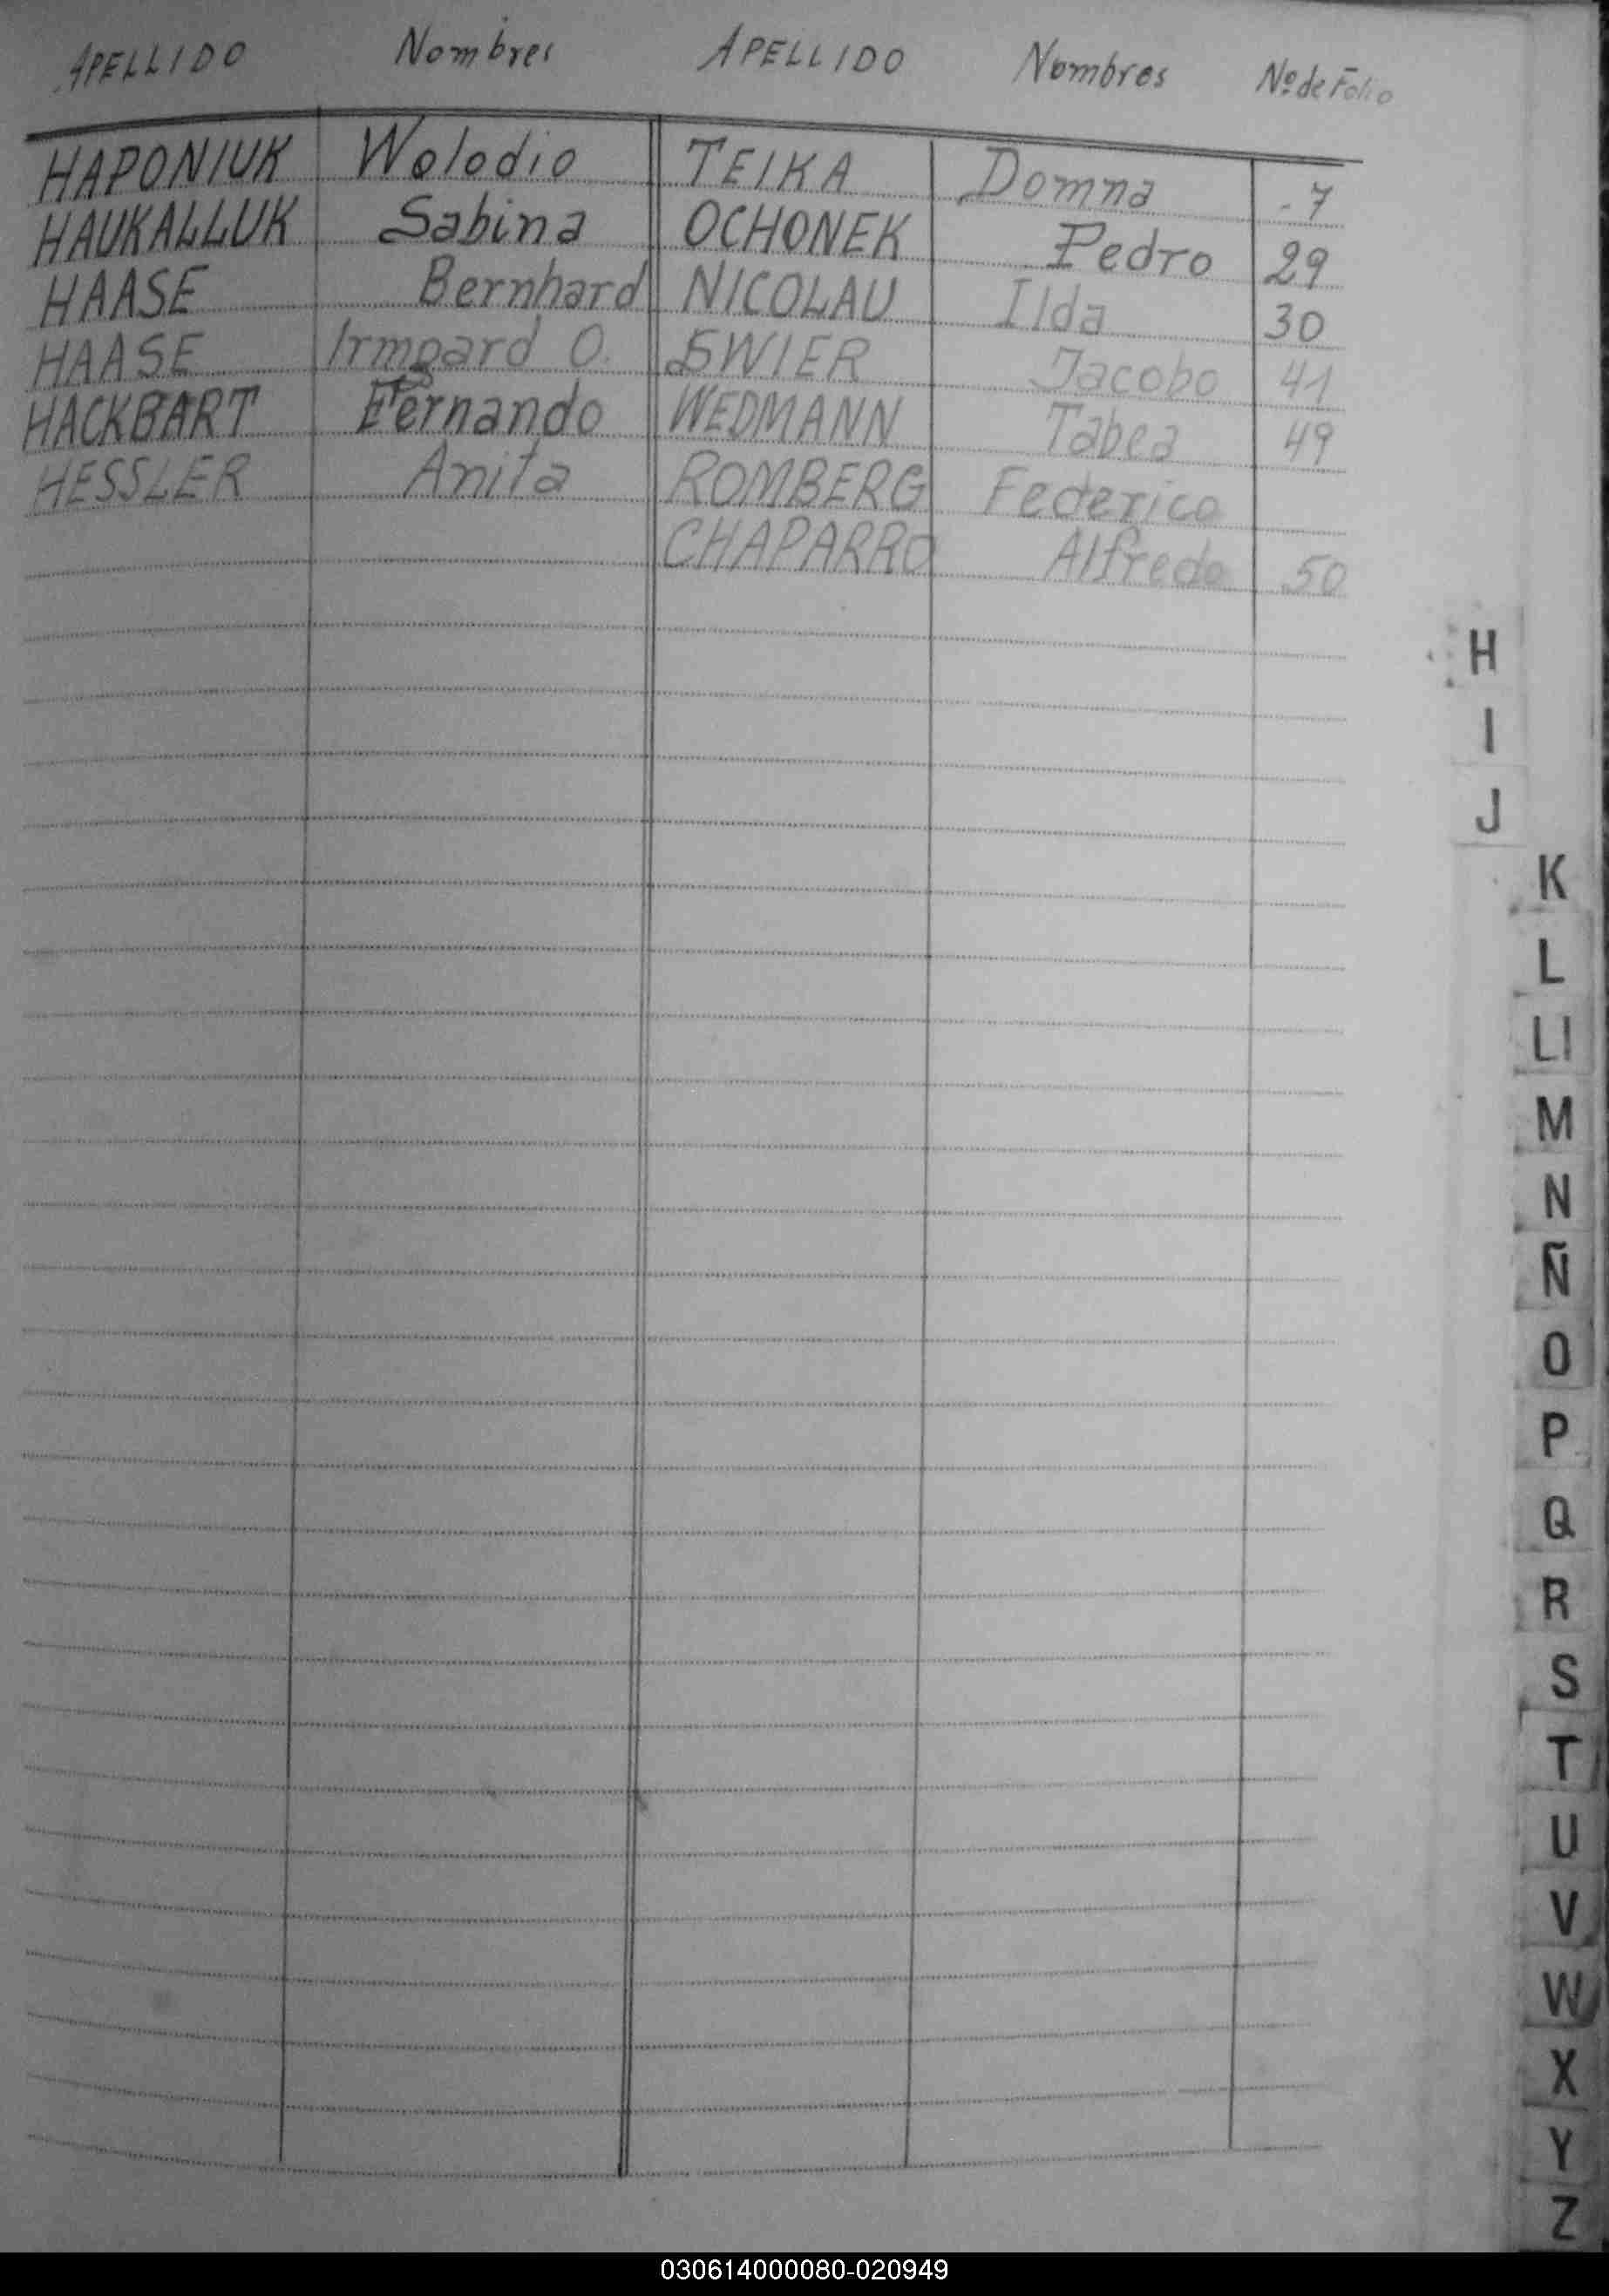 APELLIDO Nombres APELLIDO Nombres Nº de Folio
HAPONIUK Wolodio TEIKA Domna -7
HAUKALLUK Sabina OCHONEK Pedro 29
HAASE Bernhard NICOLAU Ilda 30
HAASE Irmgard O. SWIER Jacobo 41
HACKBART Fernando WEDMANN Tabea 49
HESSLER Anita ROMBERG Federico
CHAPARRO Alfredo 50
H
I
J
K
L
Ll
M
N
Ñ
O
P
Q
R
S
T
U
V
W
X
Y
Z
030614000080-020949